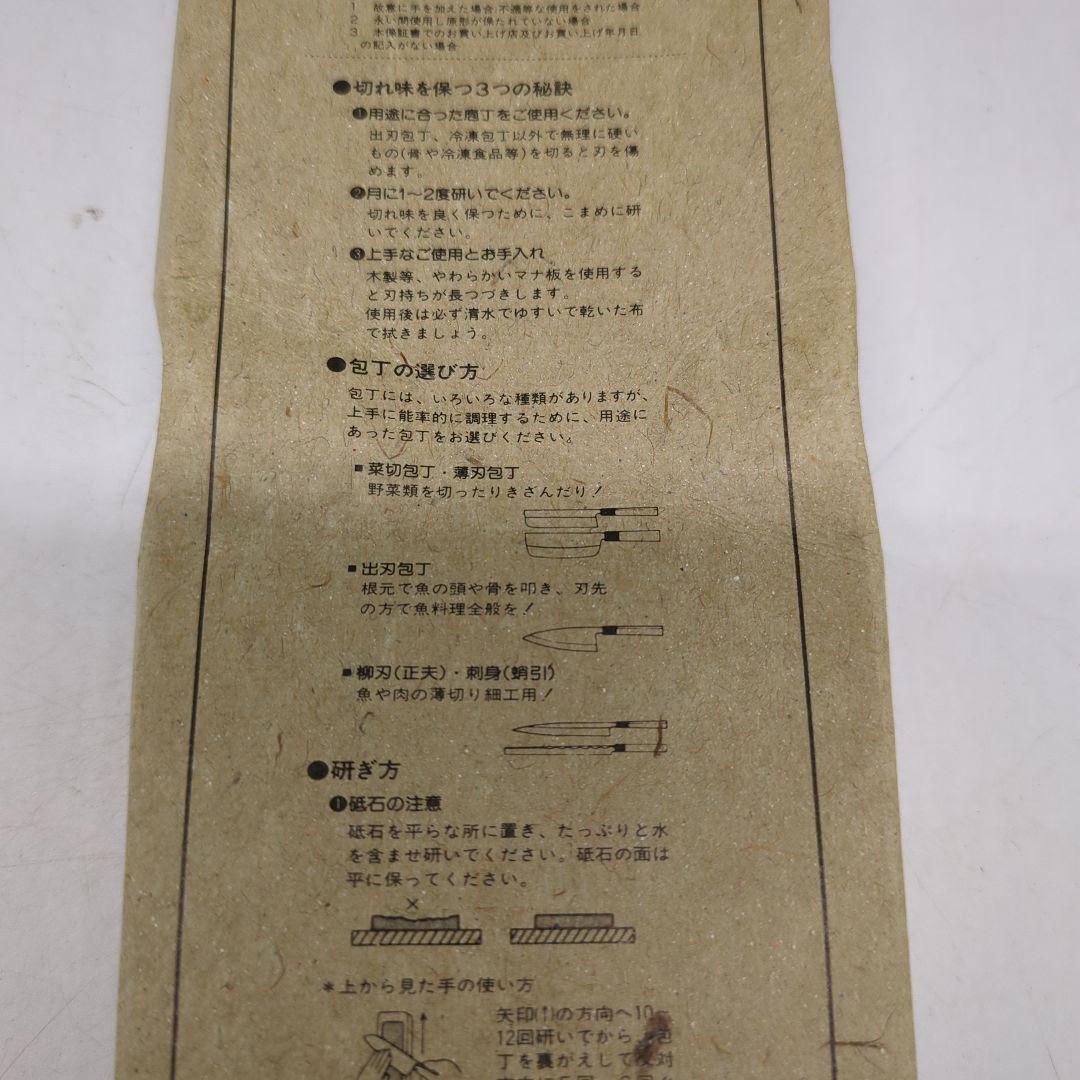 1 故意に手を加えた場合 不適等な使用をされた場合
2 永い間使用し原形が保たれていない場合
3 本保証書でのお買い上げ店及びお買い上げ年月日
の記入がない場合
●切れ味を保つ3つの秘訣
❶用途に合った庖丁をご使用ください。
出刃包丁、冷凍包丁以外で無理に硬い
もの(骨や冷凍食品等)を切ると刃を傷
めます。
❷月に1〜2度研いでください。
切れ味を良く保つために、こまめに研
いでください。
❸上手なご使用とお手入れ
木製等、やわらかいマナ板を使用する
と刃持ちが長つづきします。
使用後は必ず清水でゆすいで乾いた布
で拭きましょう。
●包丁の選び方
包丁には、いろいろな種類がありますが、
上手に能率的に調理するために、用途に
あった包丁をお選びください。
■菜切包丁・薄刃包丁
野菜類を切ったりきざんだり!
■出刃包丁
根元で魚の頭や骨を叩き、刃先
の方で魚料理全般を!
■柳刃(正夫)・刺身(蛸引)
魚や肉の薄切り細工用!
●研ぎ方
❶砥石の注意
砥石を平らな所に置き、たっぷりと水
を含ませ研いでください。砥石の面は
平に保ってください。
×
*上から見た手の使い方
矢印(↑)の方向へ10〜
12回研いでから 包
丁を裏がえして反対